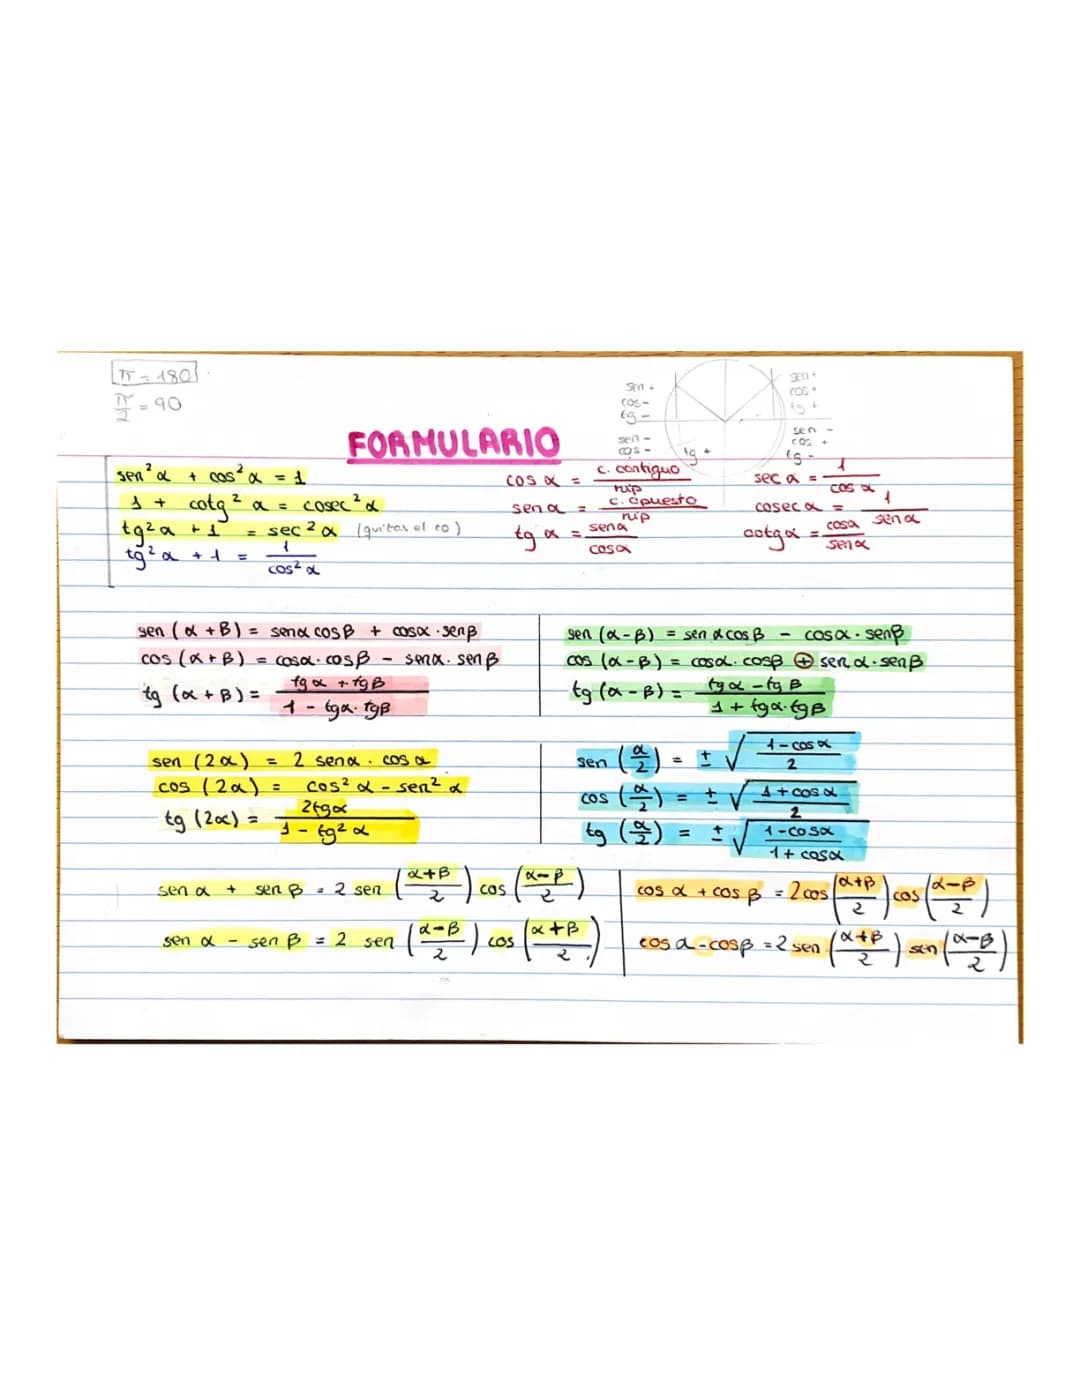 π = 180
π/2 = 90
sen +
cos -
tg -
sen +
cos +
tg +
sen -
cos -
tg +
sen -
cos +
tg -
FORMULARIO
sen² α + cos² α = 1
1 + cotg² α = cosec² α
tg² α + 1 = sec² α (quitas el co)
tg² α + 1 = 1/cos² α
cos α = c. contiguo/hip
sen α = c. opuesto/hip
tg α = sen α/cos α
sec α = 1/cos α
cosec α = 1/sen α
cotg α = cos α/sen α
sen (α + β) = sen α cos β + cos α · sen β
cos (α + β) = cos α · cos β - sen α · sen β
tg (α + β) = tg α + tg β/1 - tg α · tg β
sen (α - β) = sen α cos β - cos α · sen β
cos (α - β) = cos α · cos β ⊕ sen α · sen β
tg (α - β) = tg α - tg β/1 + tg α · tg β
sen (2α) = 2 sen α · cos α
cos (2α) = cos² α - sen² α
tg (2α) = 2tg α/1 - tg² α
sen (α/2) = ± √(1 - cos α/2)
cos (α/2) = ± √(1 + cos α/2)
tg (α/2) = ± √(1 - cos α/1 + cos α)
sen α + sen β = 2 sen (α+β/2) cos (α-β/2)
sen α - sen β = 2 sen (α-β/2) cos (α+β/2)
cos α + cos β = 2 cos (α+β/2) cos (α-β/2)
cos α - cos β = 2 sen (α+β/2) sen (α-β/2)